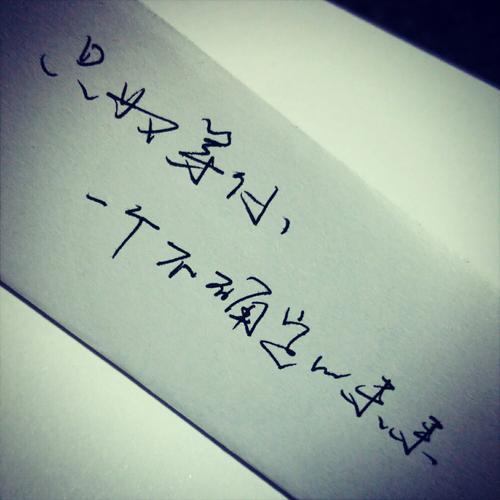 只好等待,
一个不确定的未来.